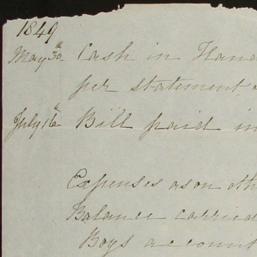 1849
May 30th Cash in Hand
per statement
July 16th Bill paid in
Expenses as on oth
Balance carried
Boys account